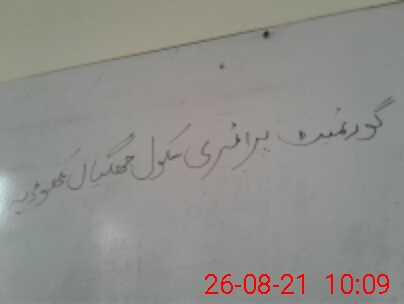 گورنمنٹ پرائمری سکول جھگیال
26-08-21 10:09